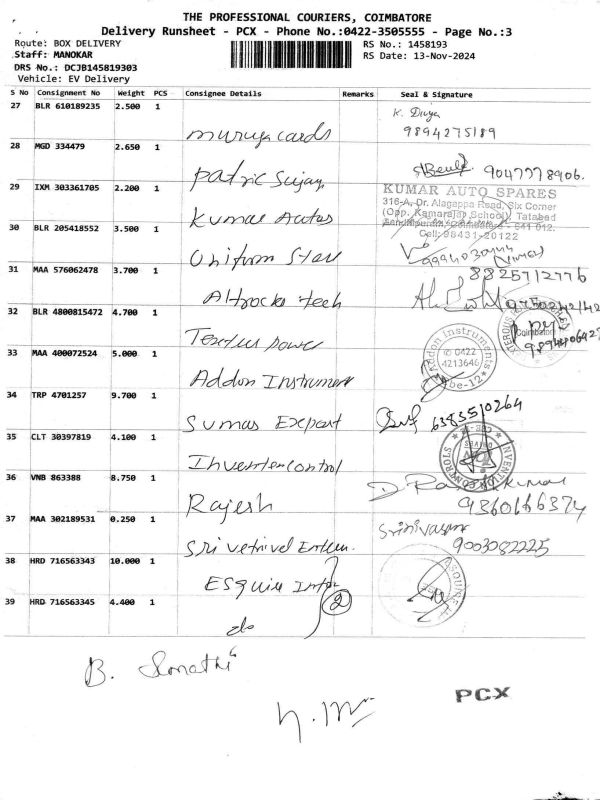 THE PROFESSIONAL COURIERS, COIMBATORE
Delivery Runsheet - PCX - Phone No.:0422-3505555 - Page No.:3
Route: BOX DELIVERY
RS No.: 1458193
Staff: MANOKAR
RS Date: 13-Nov-2024
DRS No.: DCJB145819303
Vehicle: EV Delivery
S No Consignment No Weight PCS Consignee Details Remarks Seal & Signature
27 BLR 610189235 2.500 1
K. Divya
muruga cards
9894275189
28 MGD 334479 2.650 1
Patric Sujay
9047778906.
29 IXM 303361705 2.200 1
KUMAR AUTO SPARES
316-A, Dr. Alagappa Road, Six Corner
Kumar Autos
(Opp. Kamarajar School), Tatabad
Cell: 98431-20122
30 BLR 205418552 3.500 1
Uniform Star
31 MAA 576062478 3.700 1
8825712776
Altrocks tech
32 BLR 4800815472 4.700 1
Coimbatore
power
33 MAA 400072524 5.000 1
Addon Instruments
0422
4213646
Cbe-12
Addon Instrument
34 TRP 4701257 9.700 1
6383510264
Sumas Export
35 CLT 30397819 4.100 1
INVENTION CONTROLS
CBE-4
Invention control
36 VNB 863388 8.750 1
Rajesh
9360166374
37 MAA 302189531 0.250 1
Srinivasan
9003082225
Sri vetrivel
38 HRD 716563343 10.000 1
Esquire
2
39 HRD 716563345 4.400 1
do
B.
PCX